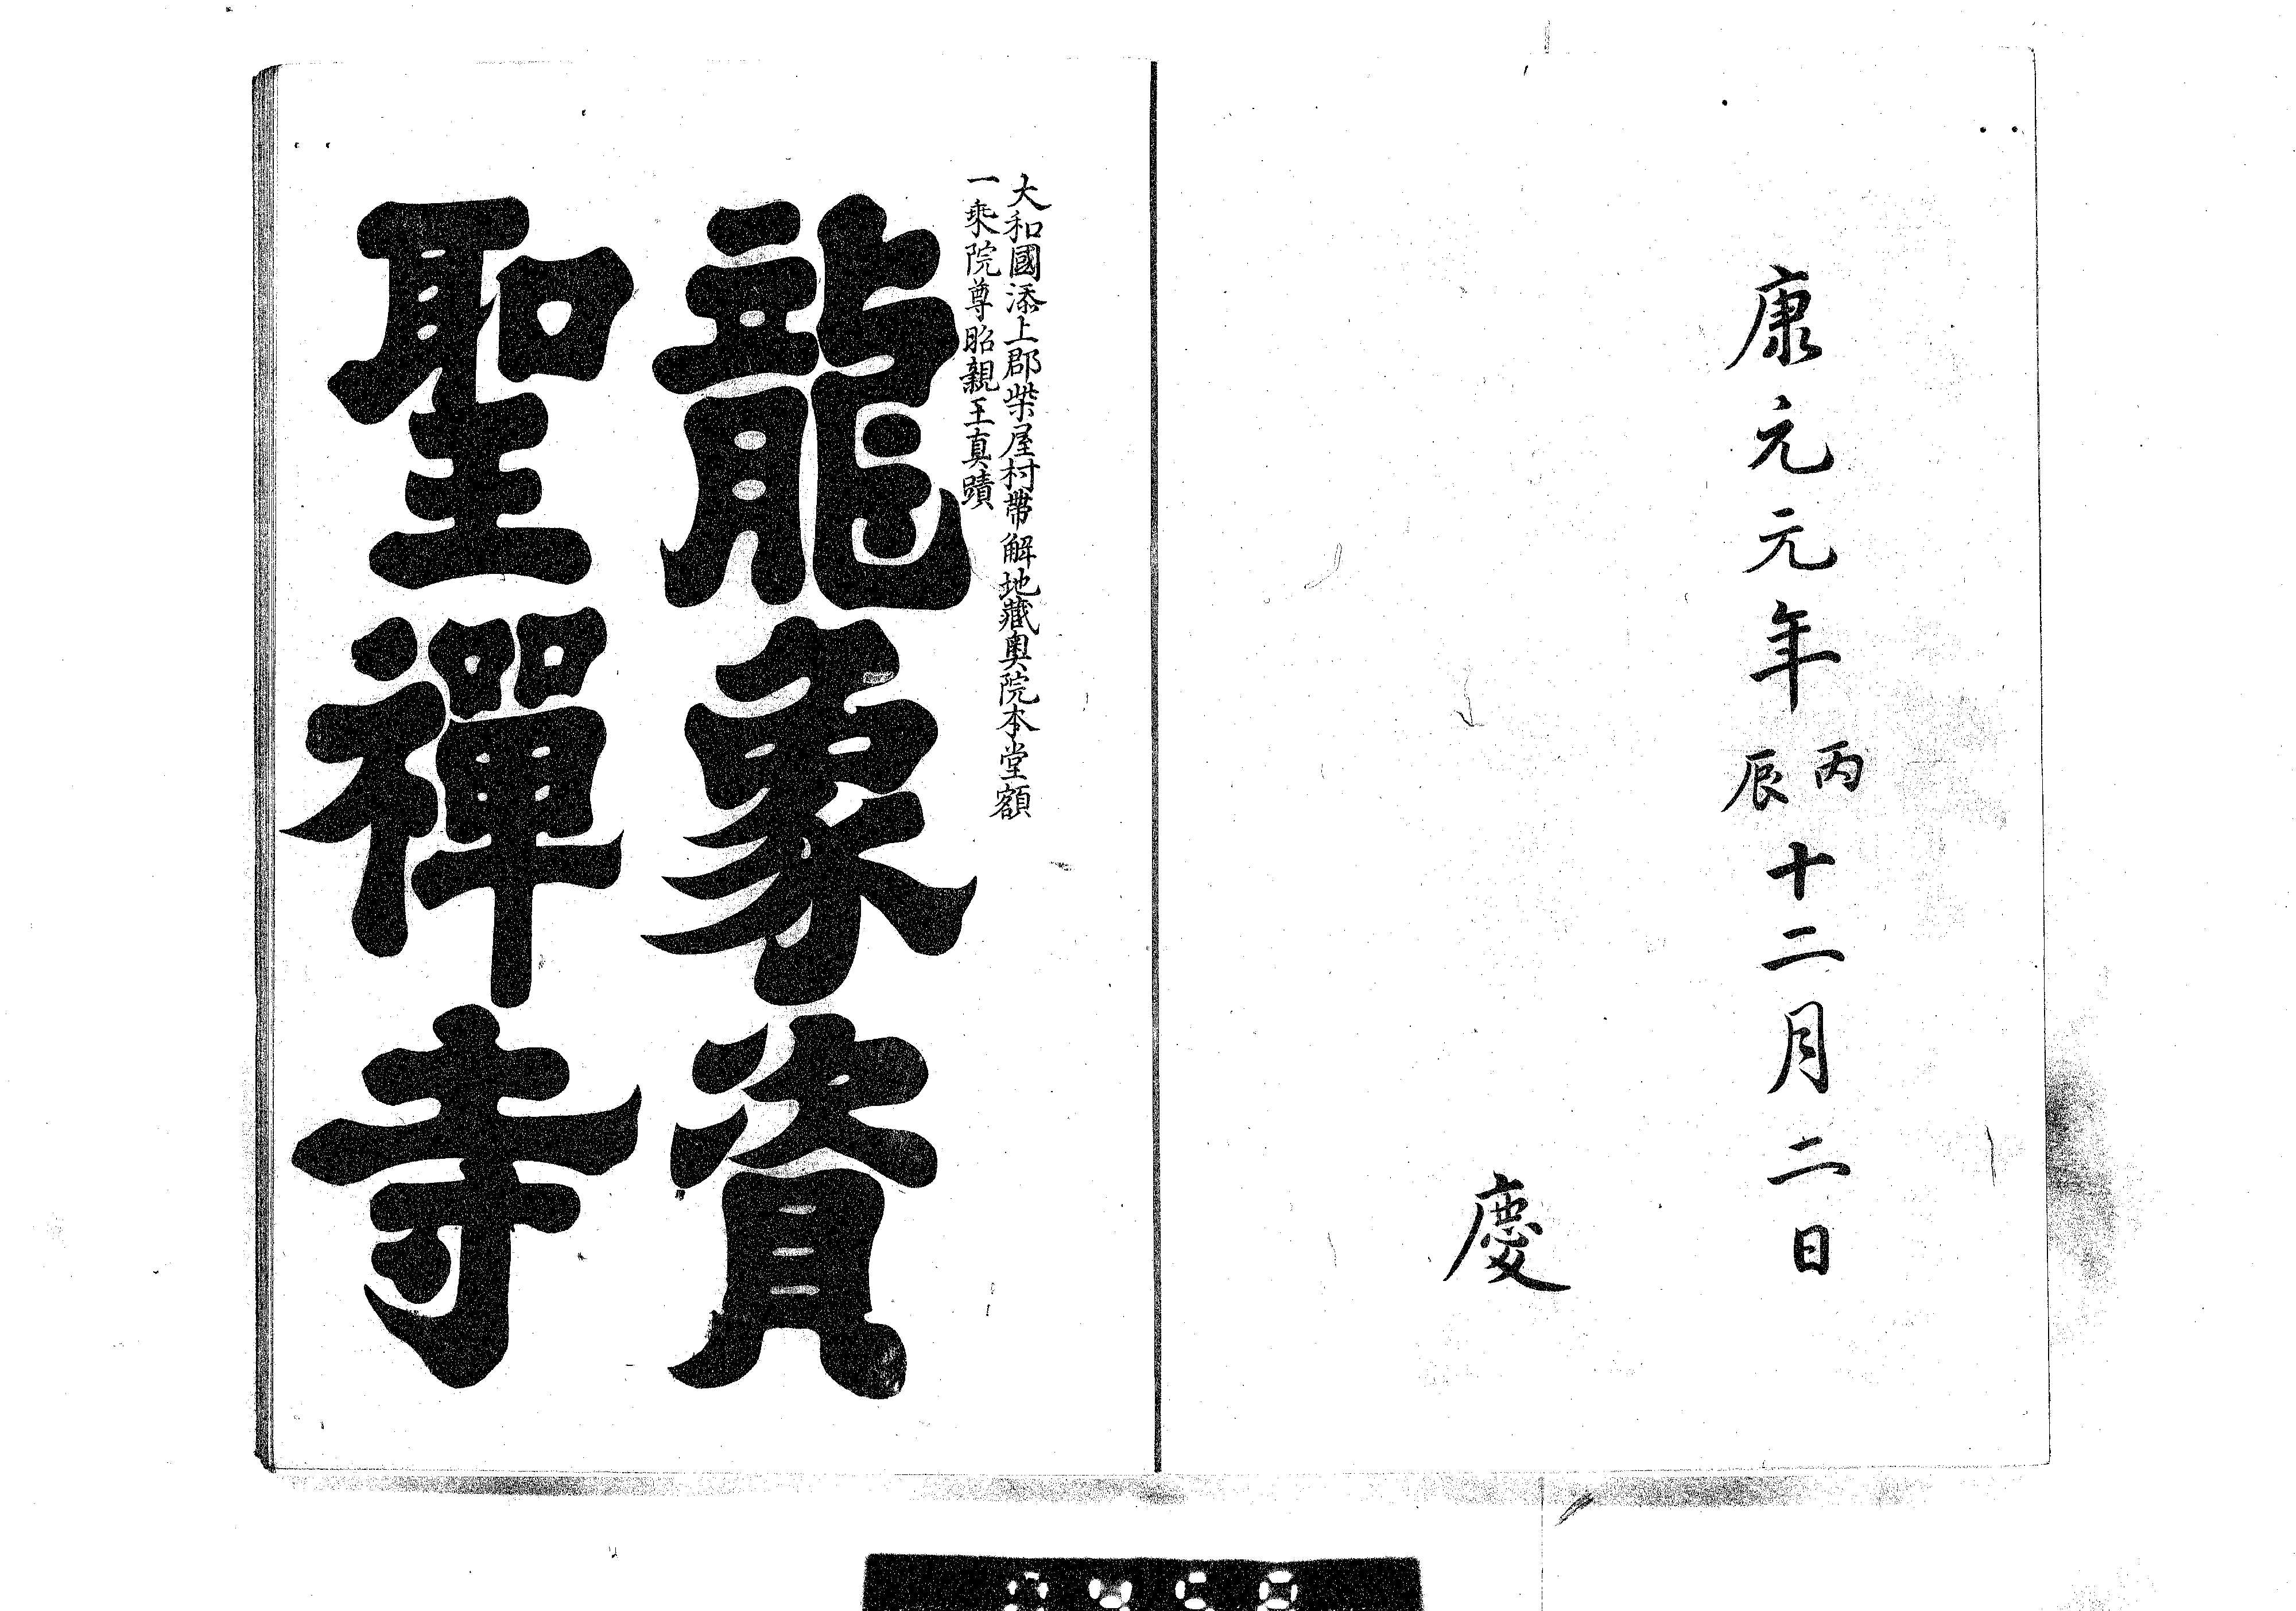 康元元年丙辰十二月二日
慶
大和國添上郡柴屋村帶解地藏奥院本堂額
一乘院尊昭親王真蹟
龍象資
聖禪寺